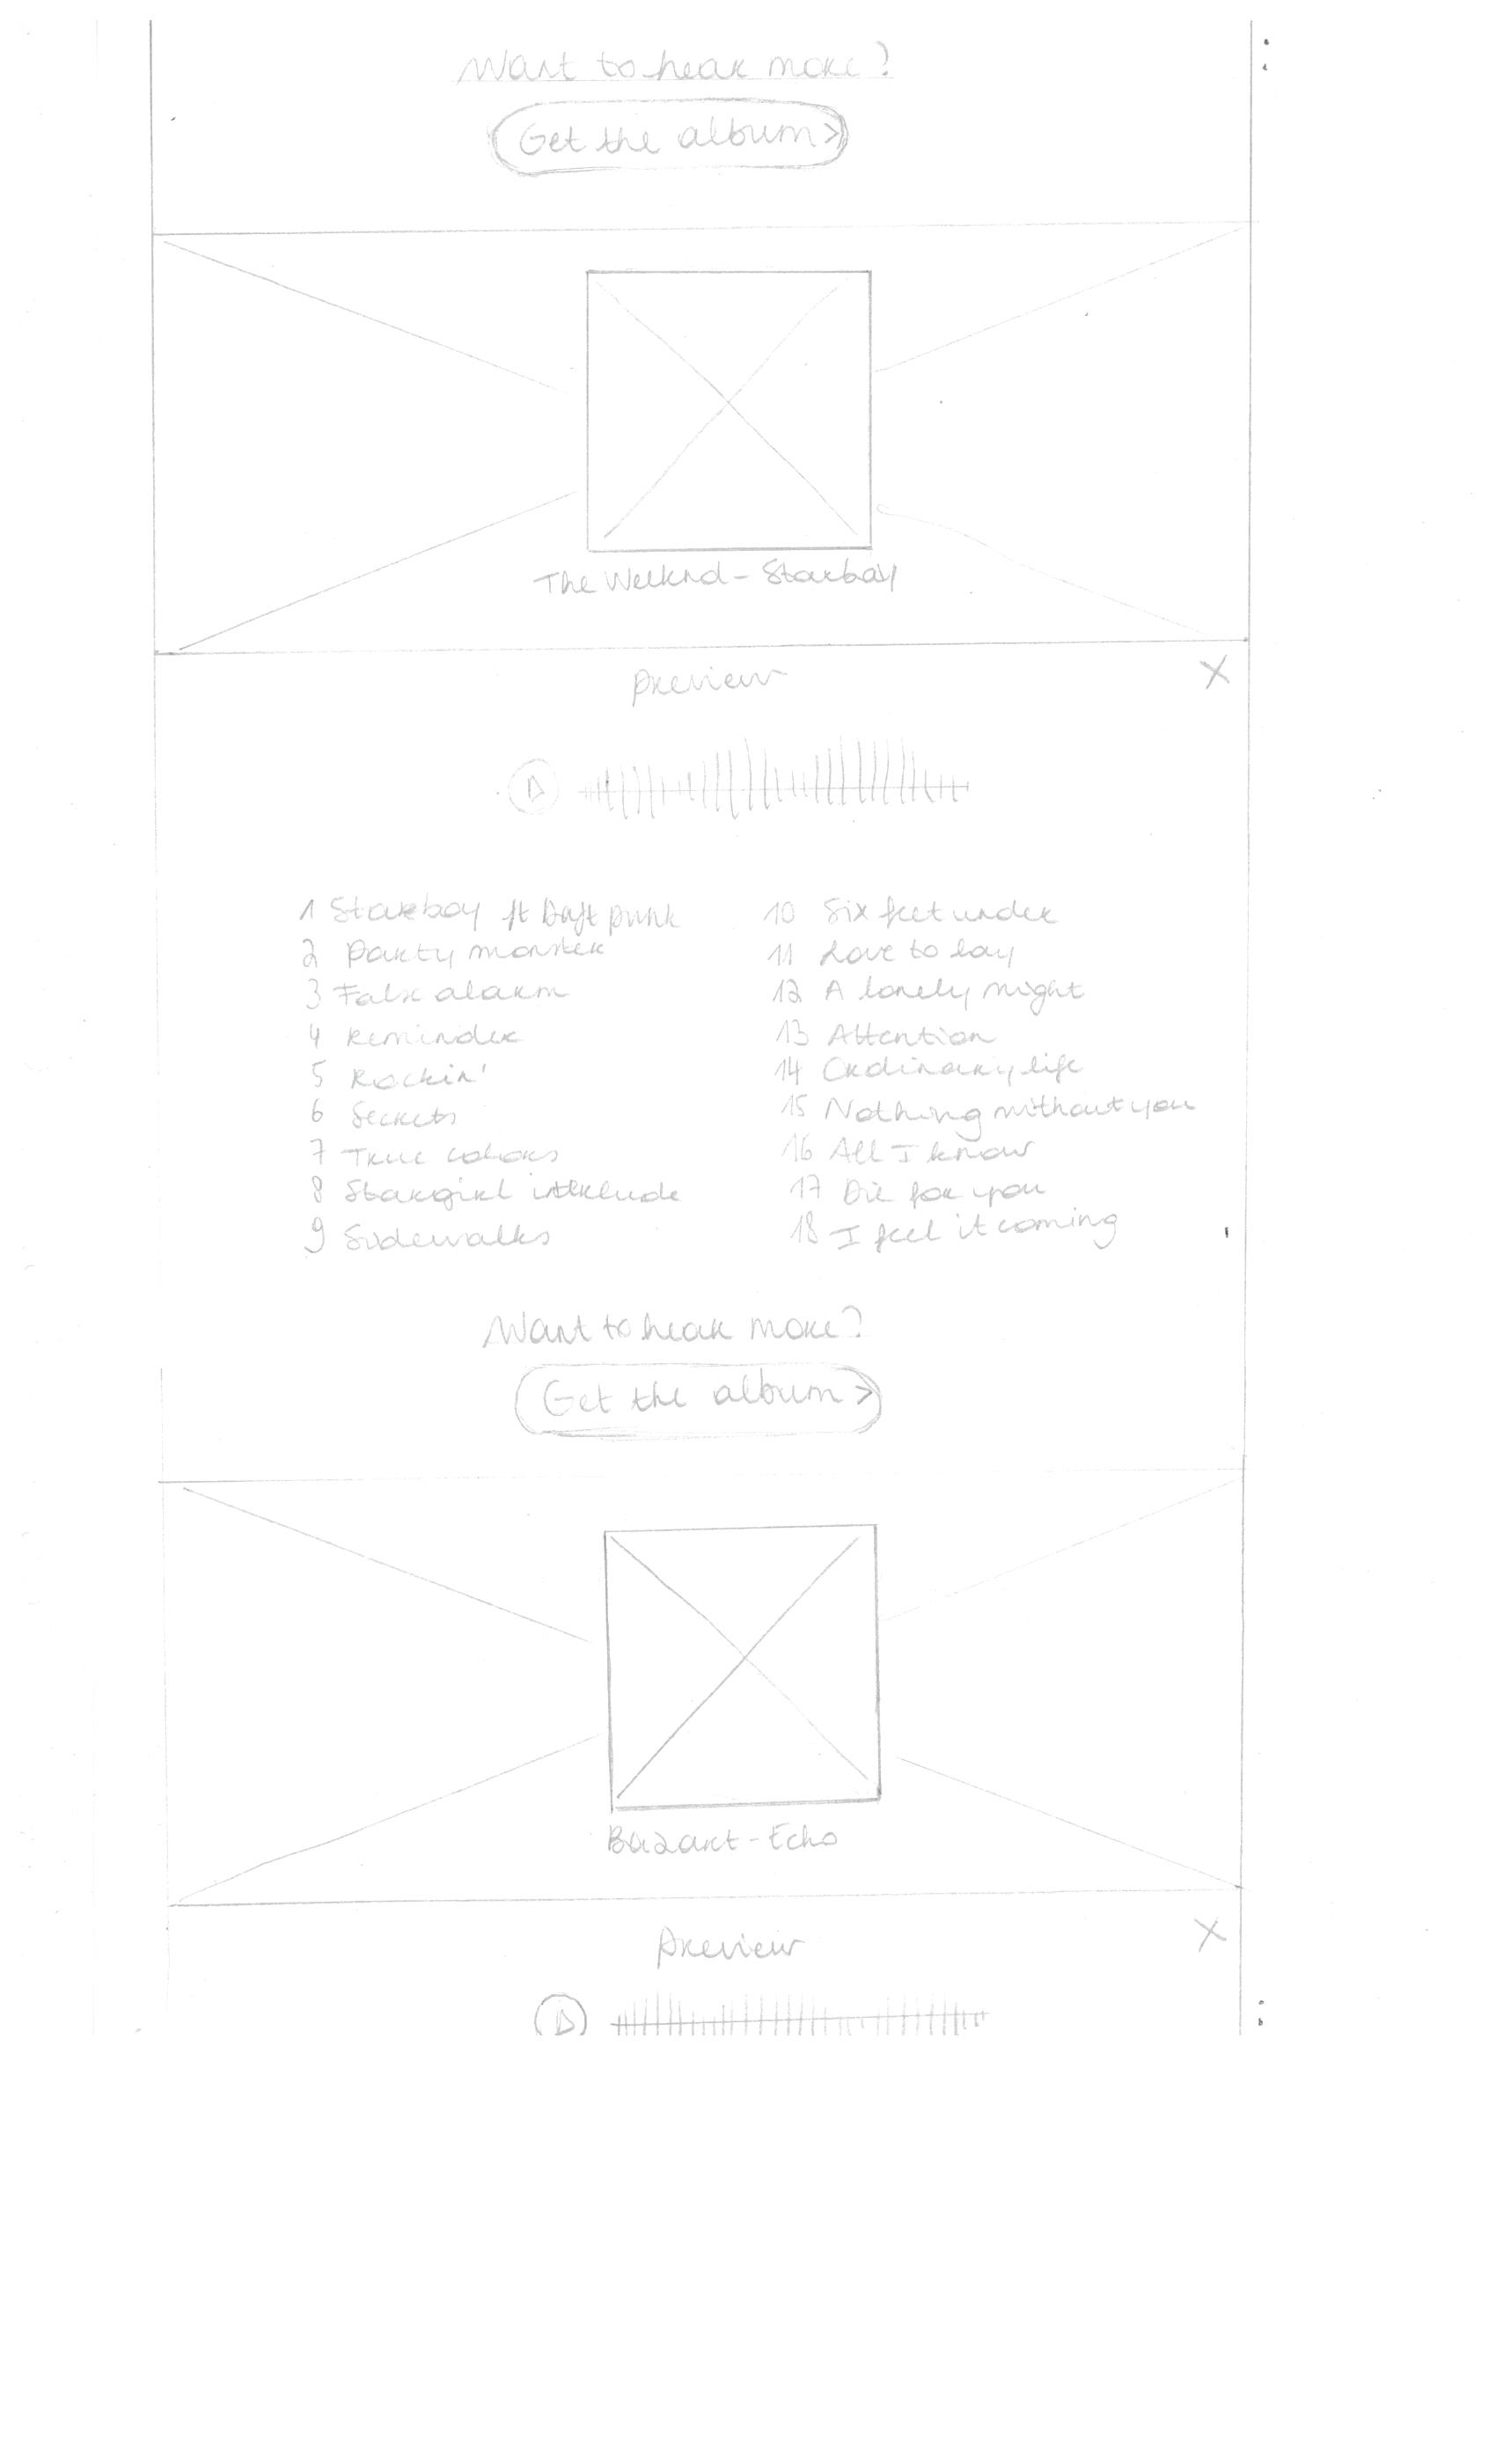 Want to hear more?
Get the album >
The Weeknd - Starboy
Preview
X
1 Starboy ft Daft punk
2 Party monster
3 False alarm
4 Reminder
5 Rockin'
6 Secrets
7 True colors
8 Stargirl interlude
9 Sidewalks
10 Six feet under
11 Love to lay
12 A lonely night
13 Attention
14 Ordinary life
15 Nothing without you
16 All I know
17 Die for you
18 I feel it coming
Want to hear more?
Get the album >
Bazart - Echo
Preview
X